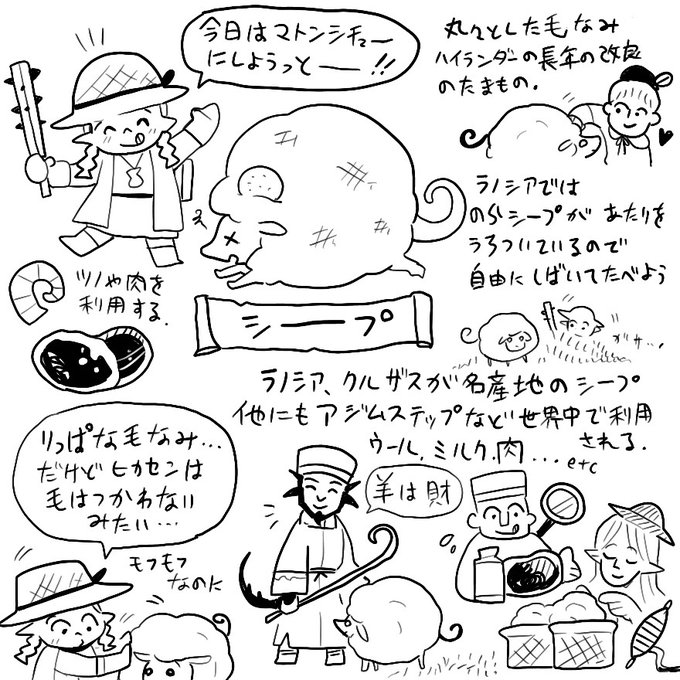 今日はマトンシチュー
にしようっとー!!
丸々とした毛なみ
ハイランダーの長年の改良
のたまもの.
ラノシアでは
のらシープが あたりを
うろついているので
自由にしばいてたべよう
ツノや肉を
利用する.
シープ
ガサ…
ラノシア、クルザスが名産地のシープ
他にもアジムステップなど世界中で利用
される.
ウール、ミルク、肉...etc
りっぱな毛なみ…
だけどヒカセンは
毛はつかわない
みたい…
モフモフ
なのに
羊は財